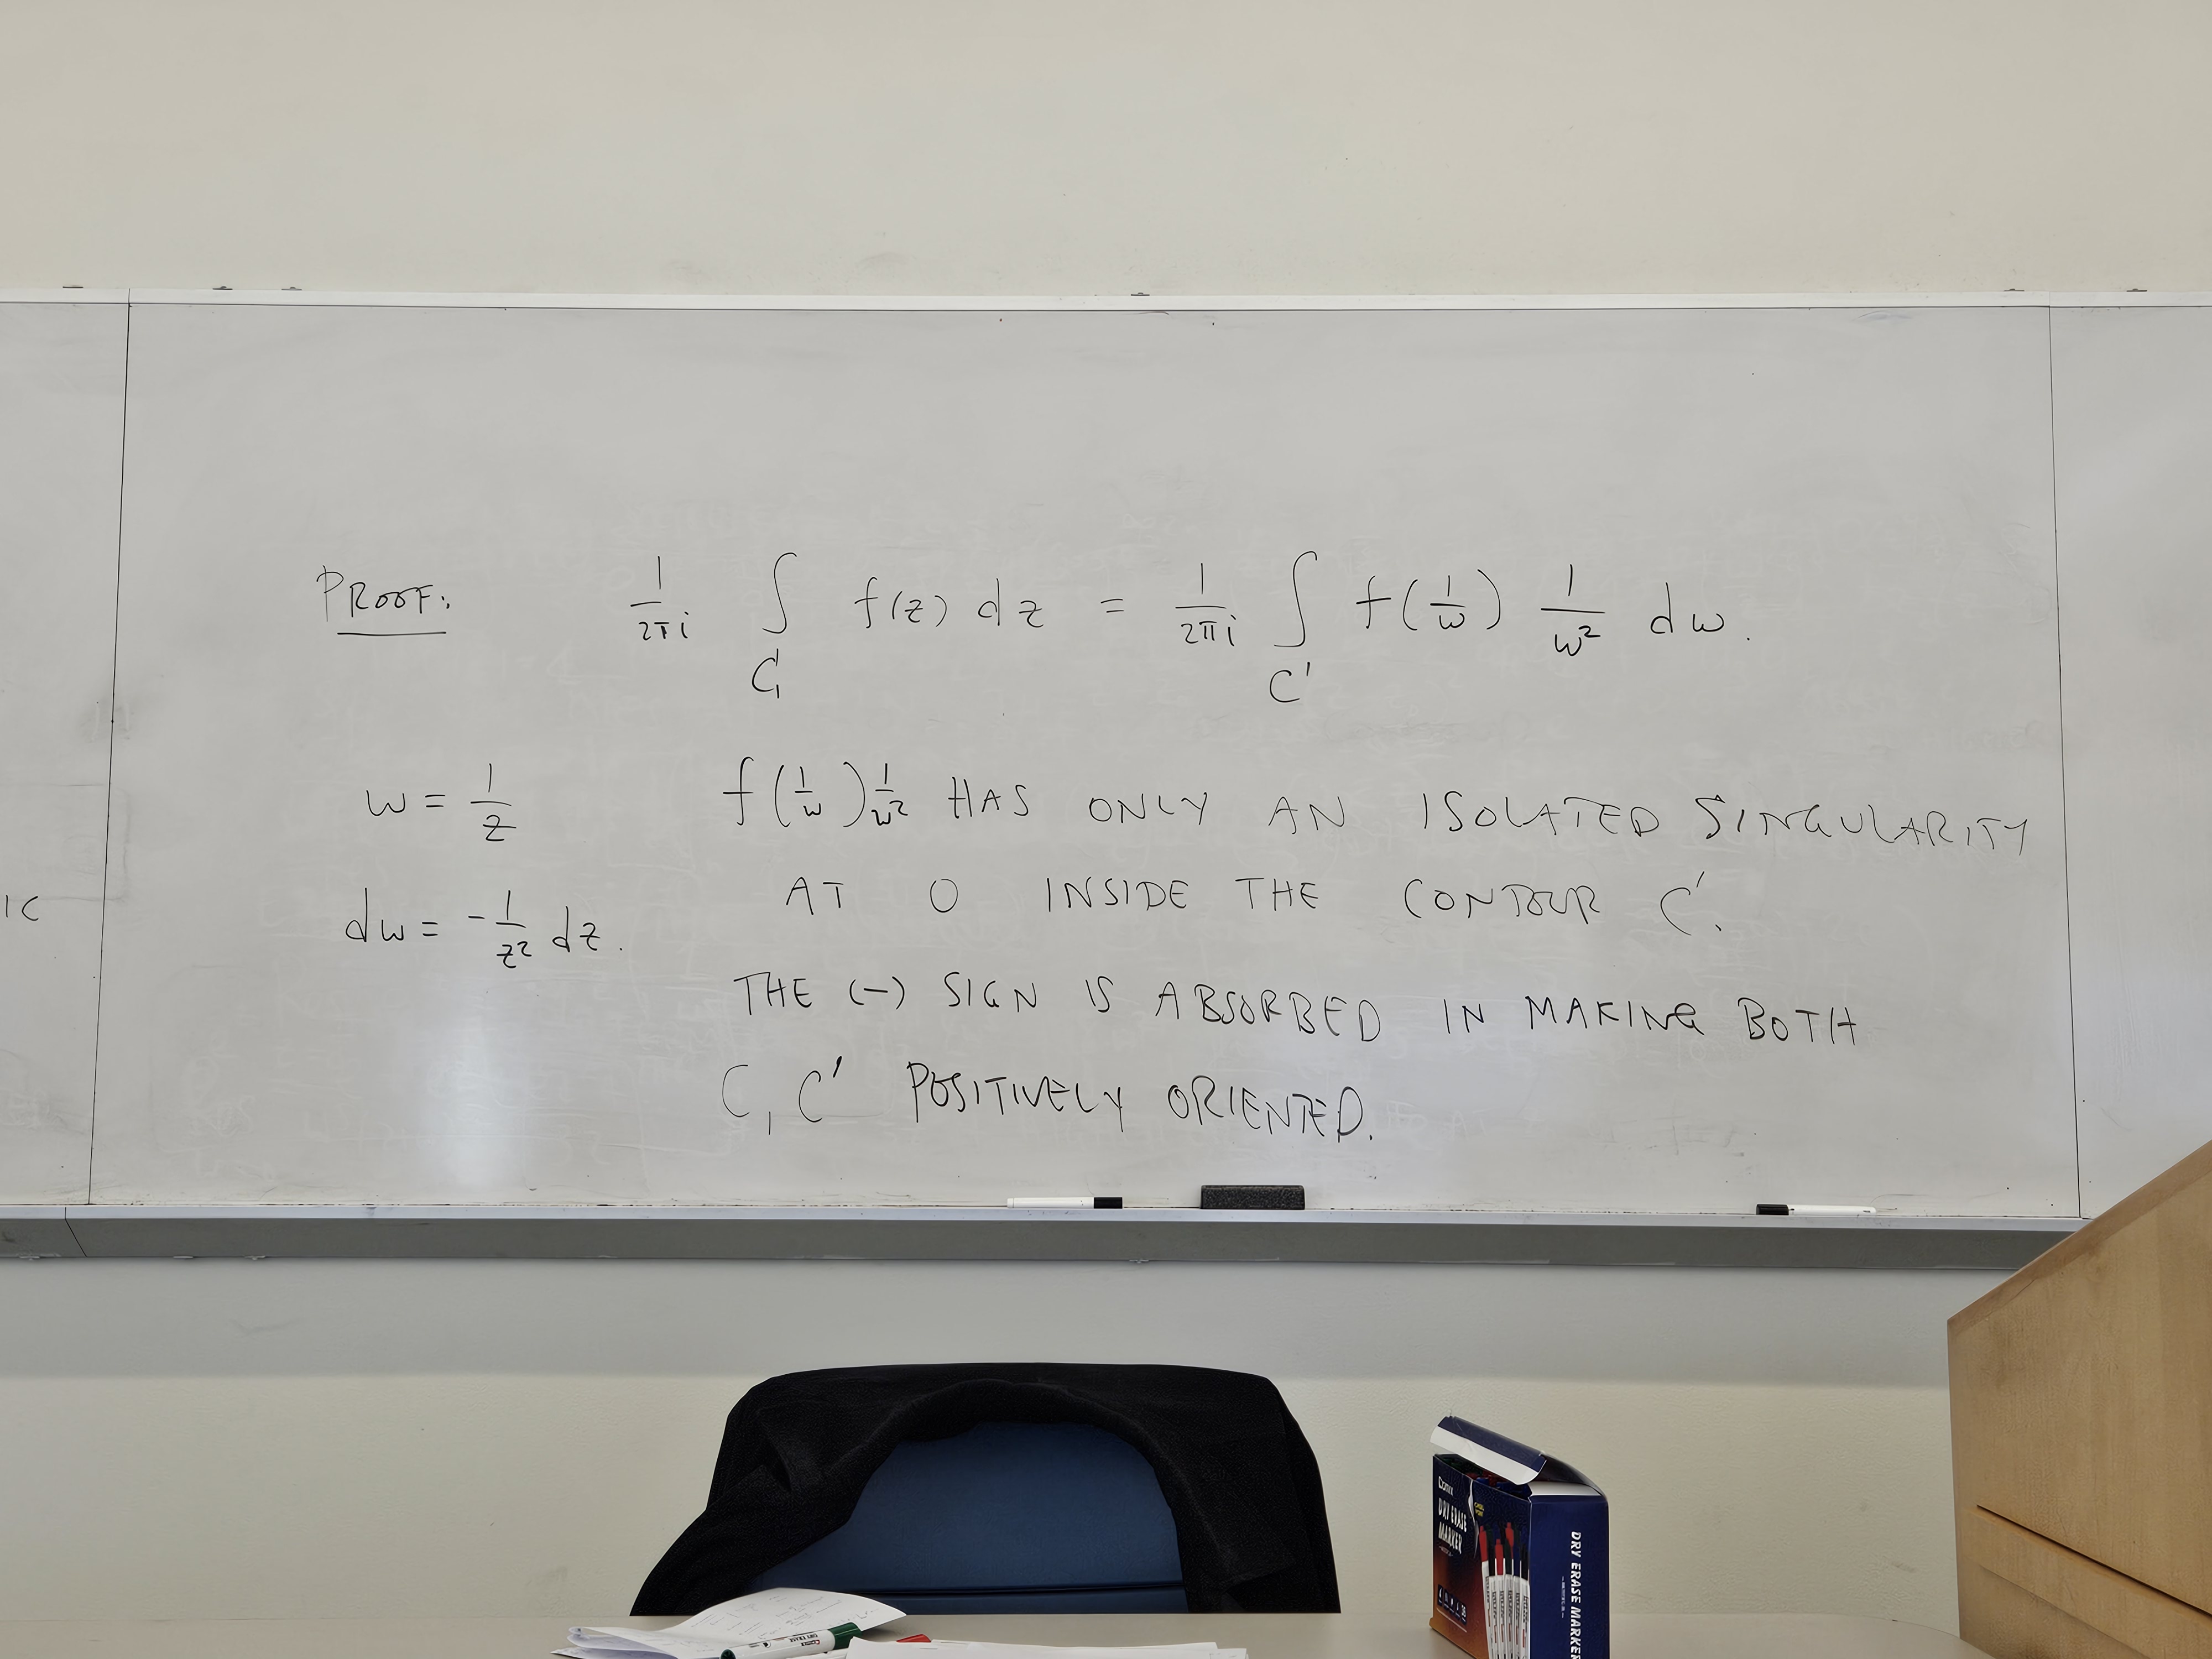 PROOF: 1/2πi ∫_C f(z) dz = 1/2πi ∫_C' f(1/w) 1/w² dw.
w = 1/z
dw = -1/z² dz.
f(1/w) 1/w² HAS ONLY AN ISOLATED SINGULARITY
AT 0 INSIDE THE CONTOUR C'.
THE (-) SIGN IS ABSORBED IN MAKING BOTH
C, C' POSITIVELY ORIENTED.
IC
DRY ERASE
MARKER
DRY ERASE MARKER